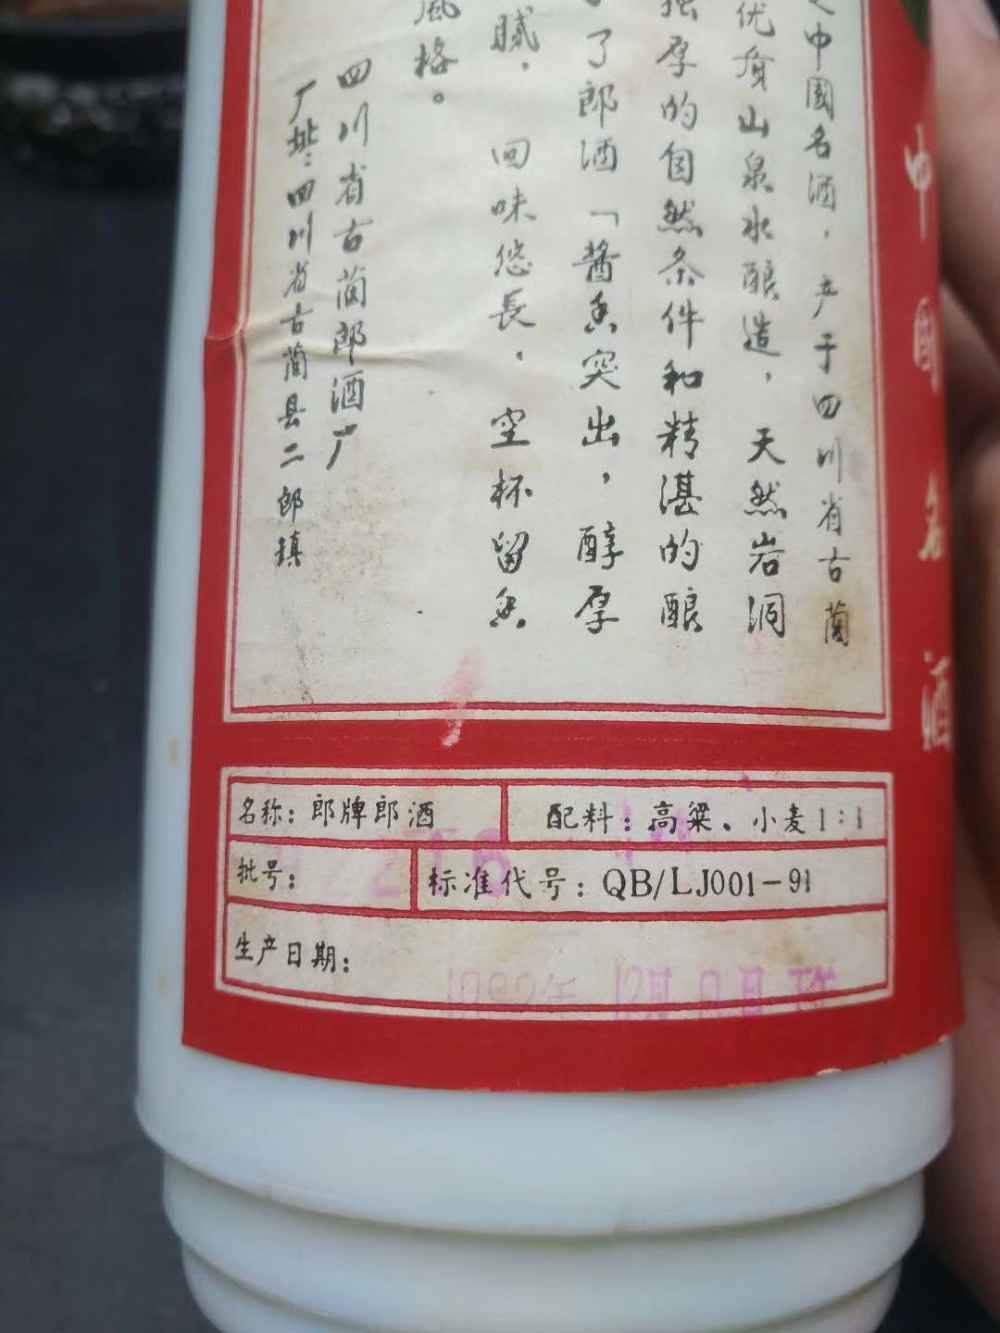 中國名酒，产于四川省古藺
优質山泉水酿造，天然岩洞
厚的自然条件和精湛的酿
了郎酒「酱香突出，醇厚
膩，回味悠長，空杯留香
風格。
四川省古藺郎酒厂
厂址：四川省古藺县二郎镇
中國名酒
名称：郎牌郎酒
配料：高粱、小麦1:1
批号：
标准代号：QB/LJ001-91
生产日期：